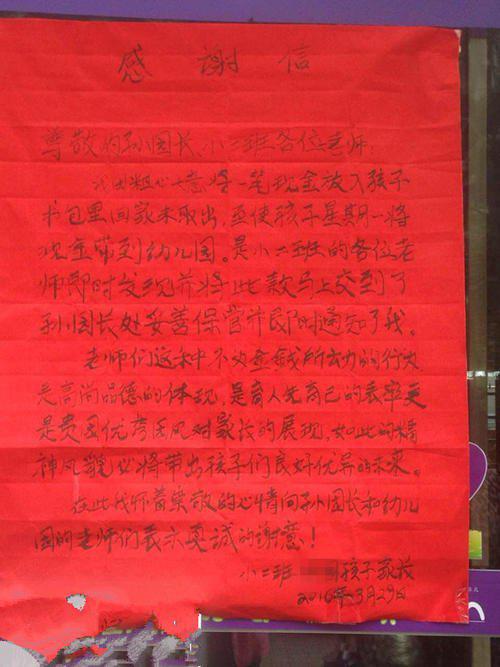 感谢信
尊敬的孙园长、小二班各位老师:
我因粗心大意将一笔现金放入孩子
书包里回家未取出,至使孩子星期一将
现金带到幼儿园。是小二班的各位老
师即时发现并将此款马上交到了
孙园长处妥善保管并即时通知了我。
老师们这种不为金钱所动的行为
是高尚品德的体现,是育人先育己的表率更
是贵园优秀园风对家长的展现,如此的精
神风貌必将带出孩子们良好优异的未来。
在此我怀着崇敬的心情向孙园长和幼儿
园的老师们表示真诚的谢意!
小二班 孩子家长
2016年3月29日